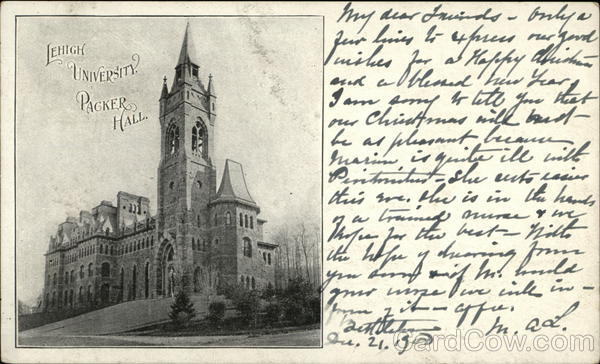 LEHIGH
UNIVERSITY.
PACKER
HALL.
My dear Friends - Only a
few lines to express our good
wishes for a Happy Christmas
and a blessed New Year
I am sorry to tell you that
our Christmas will not
be as pleasant because
is quite ill with
Peritonitis - She rests easier
this eve. She is in the hands
of a trained nurse & we
hope for the best - With
the hope of hearing from
you soon &
your we will in-
form you
Bethlehem
Dec. 21, 
CardCow.com